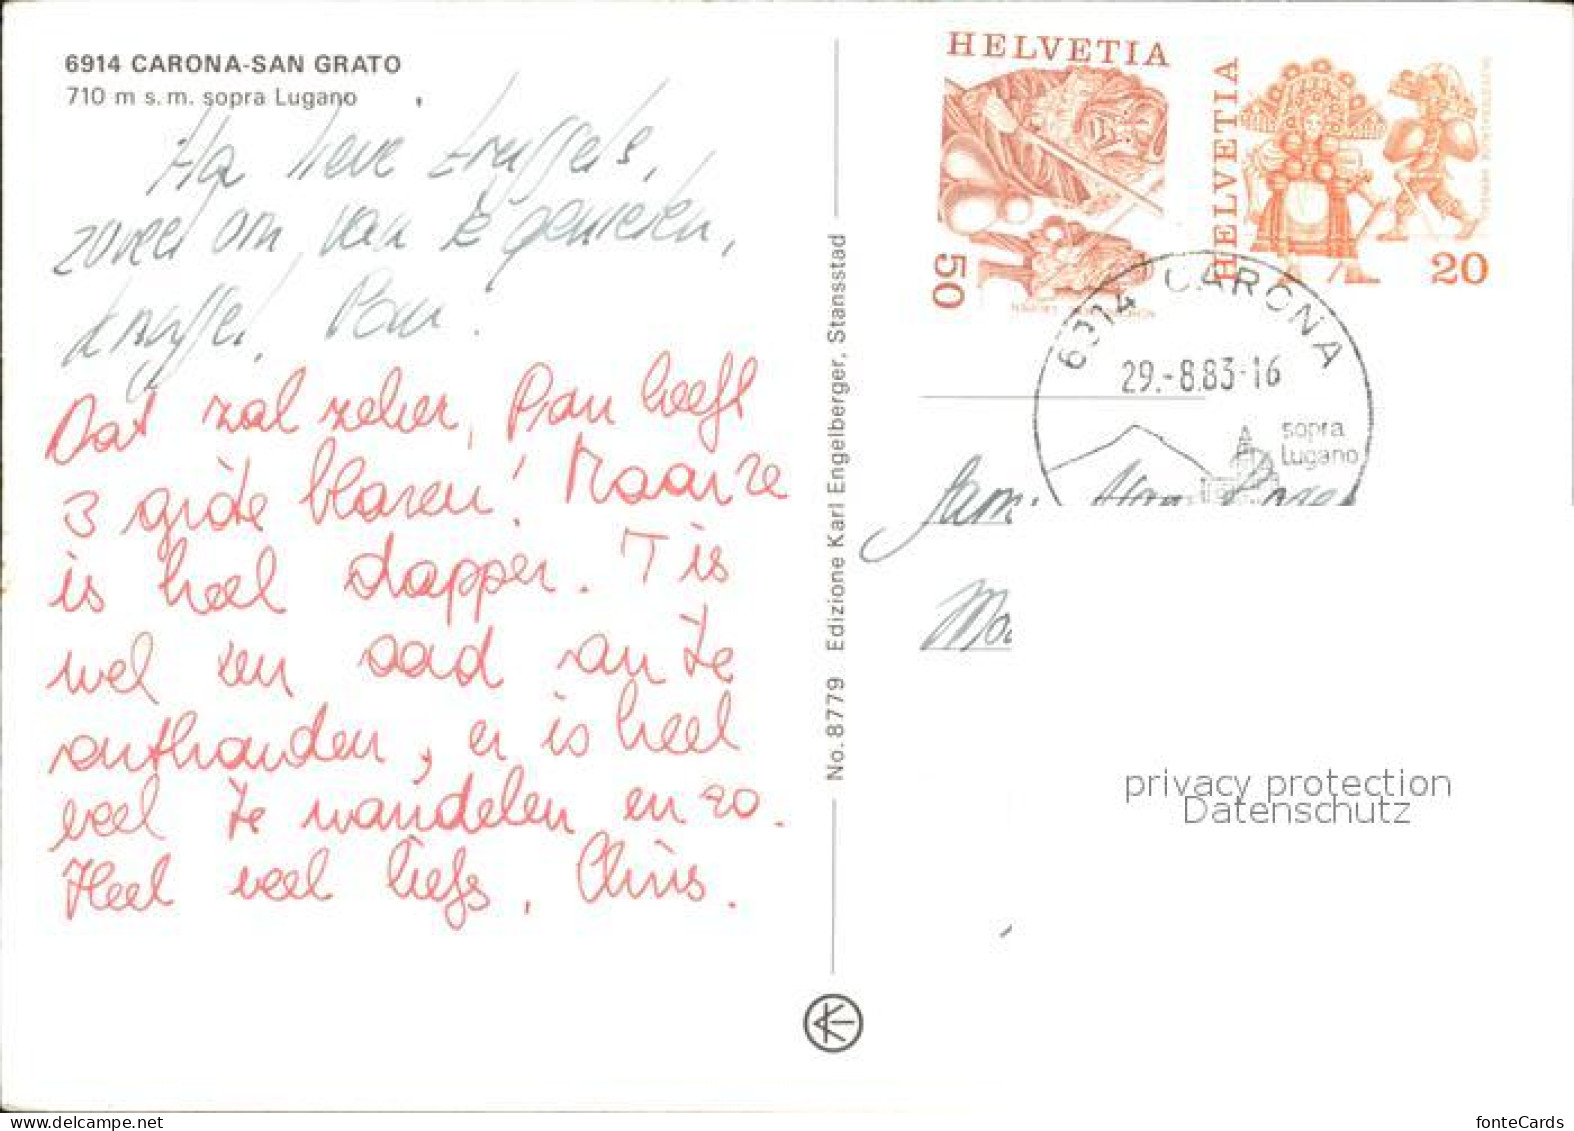 6914 CARONA-SAN GRATO
710 m s.m. sopra Lugano
Ha lieve knuffels,
zoveel om van te genieten,
knuffel, Pam!
Dat zal zeker, Pam heeft
3 grote blaren! Maar ze
is heel dapper. 'T is
wel een oad om te
onthouden, er is heel
veel te wandelen en zo.
Heel veel liefs, Chris.
No. 8779 Edizione Karl Engelberger, Stansstad
HELVETIA
50
HELVETIA
20
6914 CARONA
29.-8.83-16
sopra
Lugano
Fam.
privacy protection
Datenschutz
fonteCards